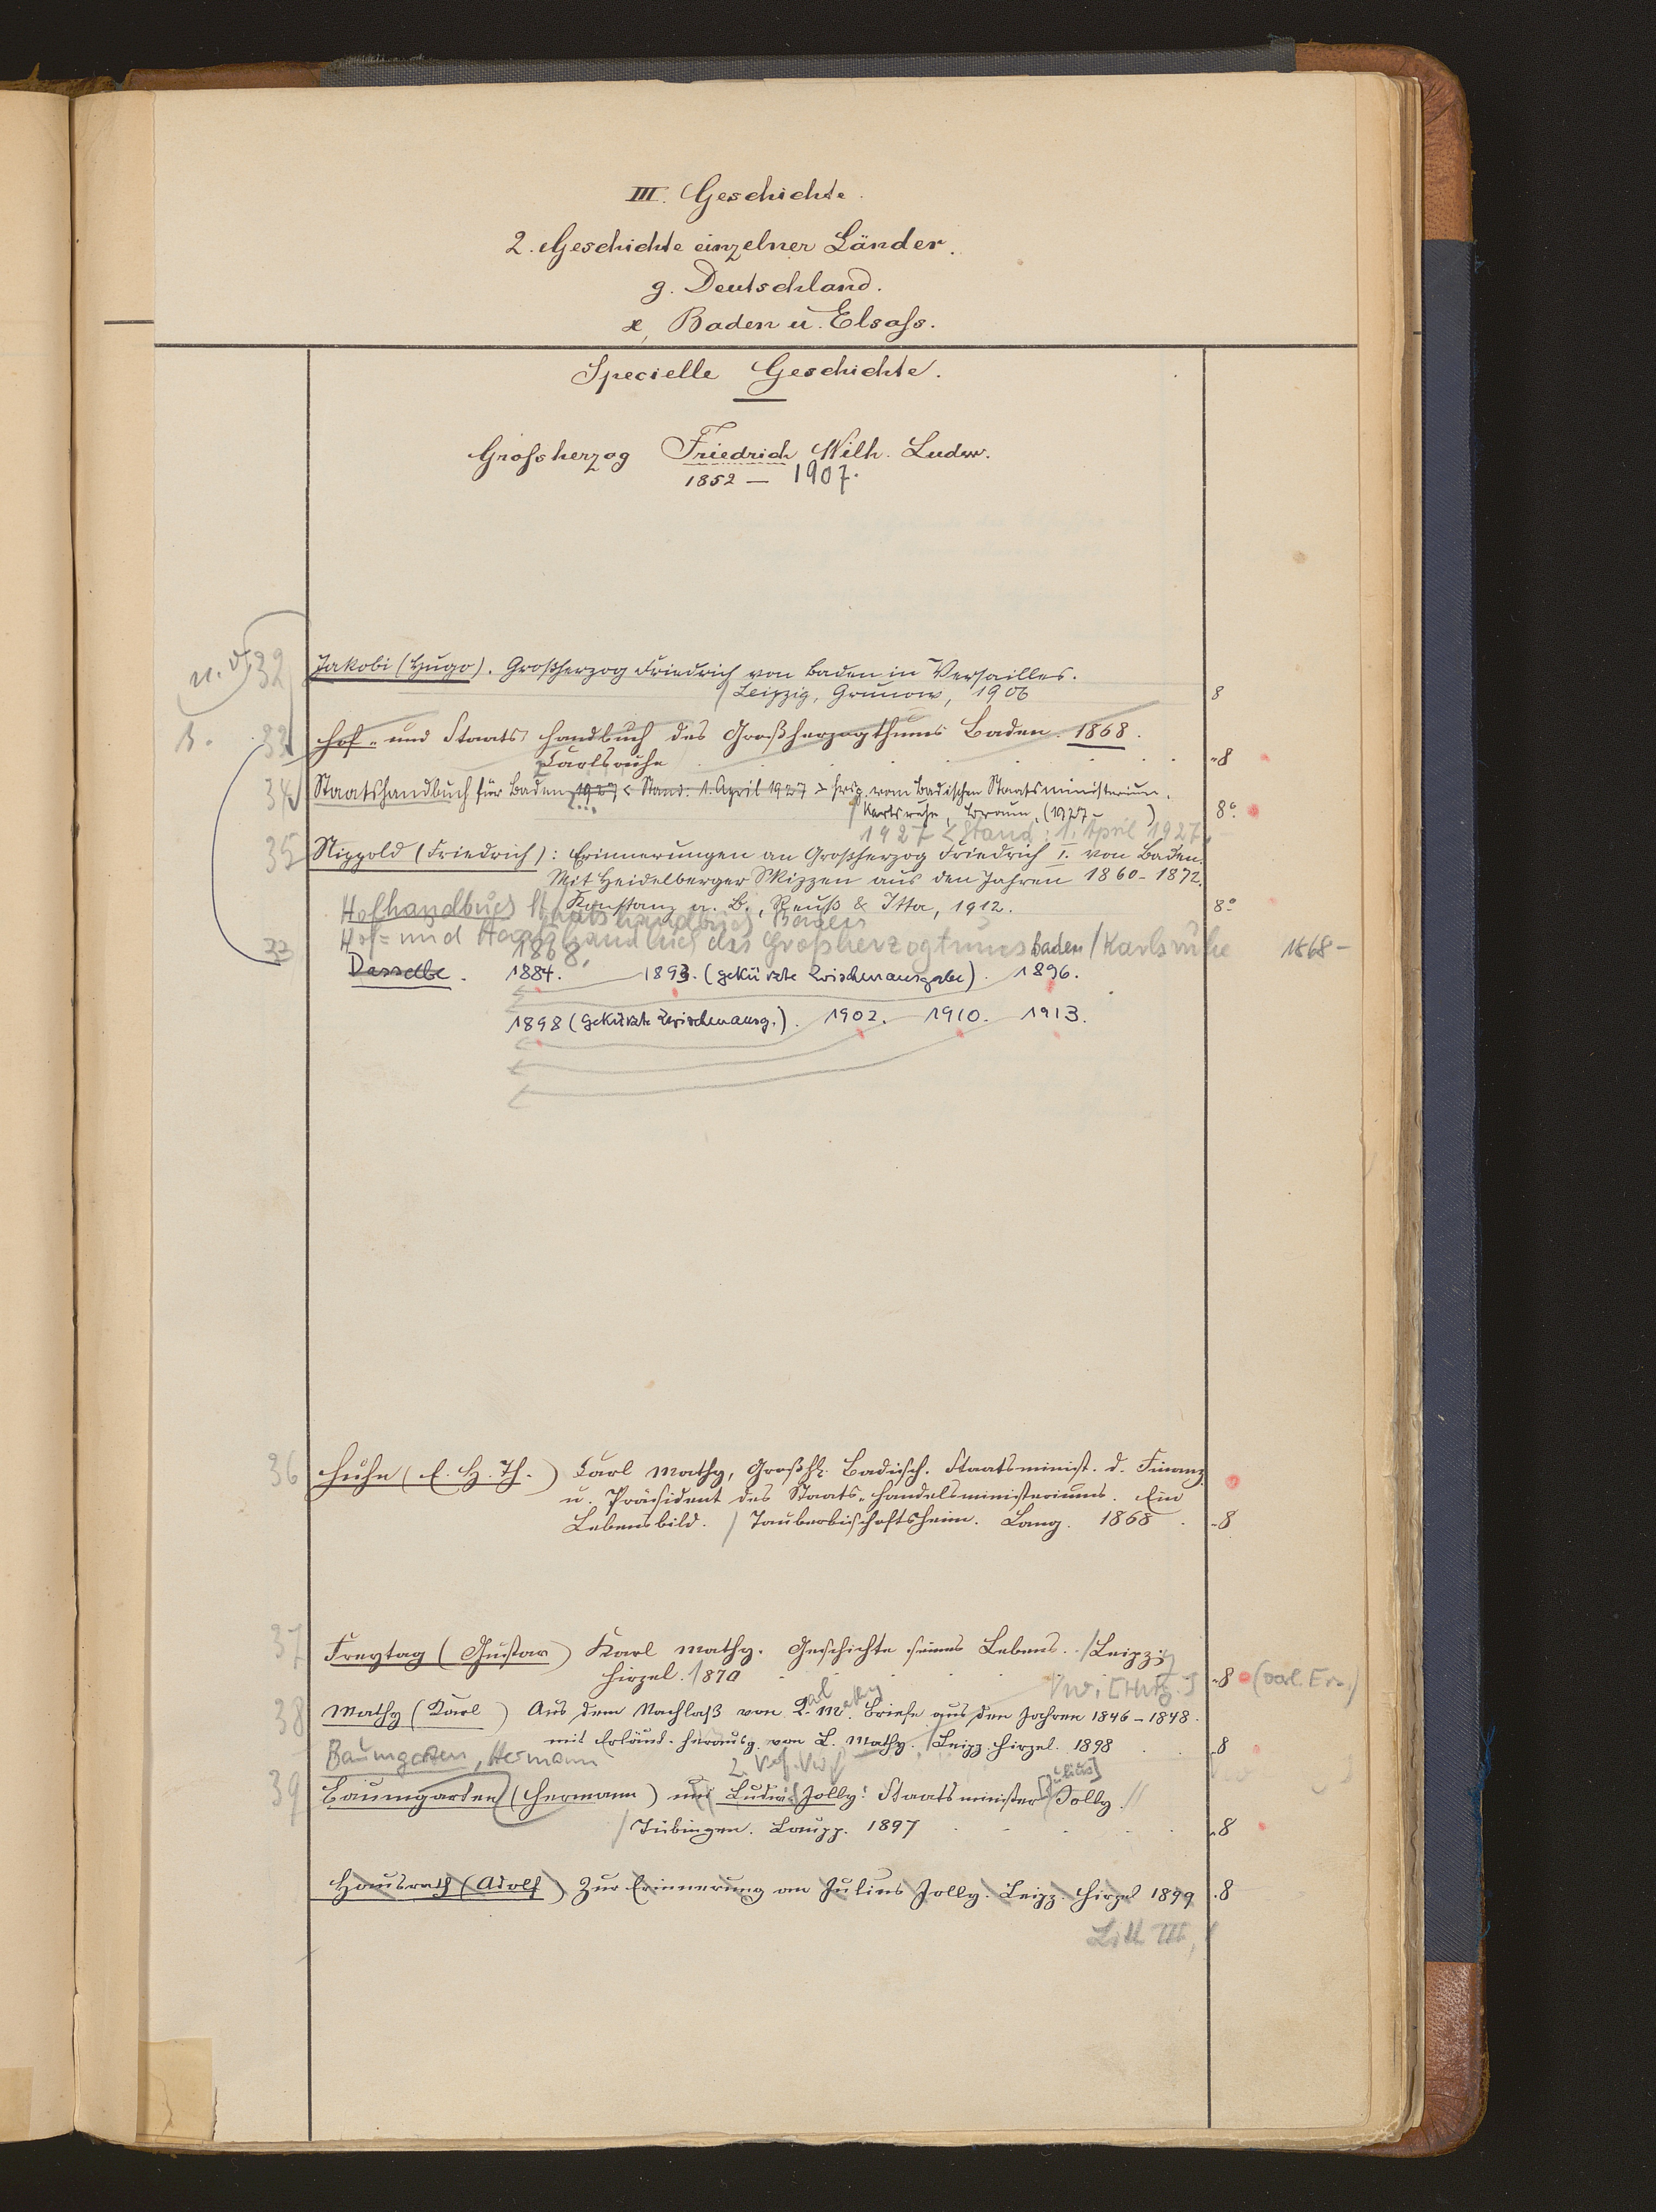 III. Geschichte.
2. Geschichte einzelner Länder.
g. Deutschland.
Baden u. Elsaſs.
Specielle Geschichte.
Groſsherzog Friedrich Wilh. Ludw.
1852 — 1907.
32 Jakobi (Hugo). Großherzog Friedrich von Baden in Versailles.
/ Leipzig, Grunow, 1906 8
Hof- und Staats handbuch des Großherzogthums Baden. 1868.
Carlsruhe . . . . . . 8
34 Staatshandbuch für Baden 1927 < Stand: 1. April 1927 > hrsg. vom Badischen Staatsministerium.
/ Karlsruhe, Braun, (1927 - ) 8°.
1927 < Stand: 1. April 1927.
35 Nippold (Friedrich): Erinnerungen an Großherzog Friedrich I. von Baden.
Mit Heidelberger Skizzen aus den Jahren 1860-1872.
/ Konstanz a. B., Reuß & Itta, 1912. 8°
Hofhandbuch Staatshandbuch Baden
Hof= und Staatshandbuch des Großherzogtums Baden / Karlsruhe 1868 -
33 1868.
Dasselbe. 1884. 1893. (gekürzte Zwischenausgabe). 1896.
1898 (gekürzte Zwischenausg.). 1902. 1910. 1913.
36 Huhn (E. H. Th.) Carl Mathy, Großhz. Badisch. Staatsminist. d. Finanz.
u. Präsident des Staats-Handelsministeriums. Ein
Lebensbild. / Tauberbischofsheim. Lang. 1868 . 8
37 Freytag (Gustav) Karl Mathy. Geschichte seines Lebens. / Leipzig
Hirzel. 1870 8
38 Mathy (Karl) Aus dem Nachlaß von K. M. Briefe aus den Jahren 1846-1848.
mit Erläut. herausg. von L. Mathy. / Leipz. Hirzel. 1898 8
Baumgarten, Hermann
39 Baumgarten (Hermann) und Ludwig Jolly: Staatsminister [Julius] Jolly. //
/ Tübingen. Laupp. 1897 . . . . 8
Hausrath (Adolf) Zur Erinnerung an Julius Jolly. Leipz. Hirzel 1899 8